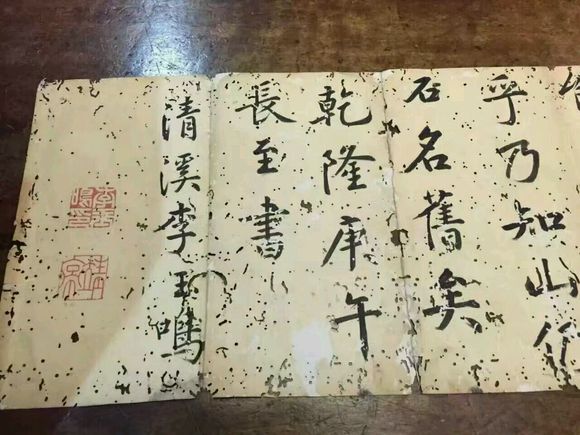 乎乃知山
石名舊矣
乾隆庚午
長至書
清溪李玉鳴